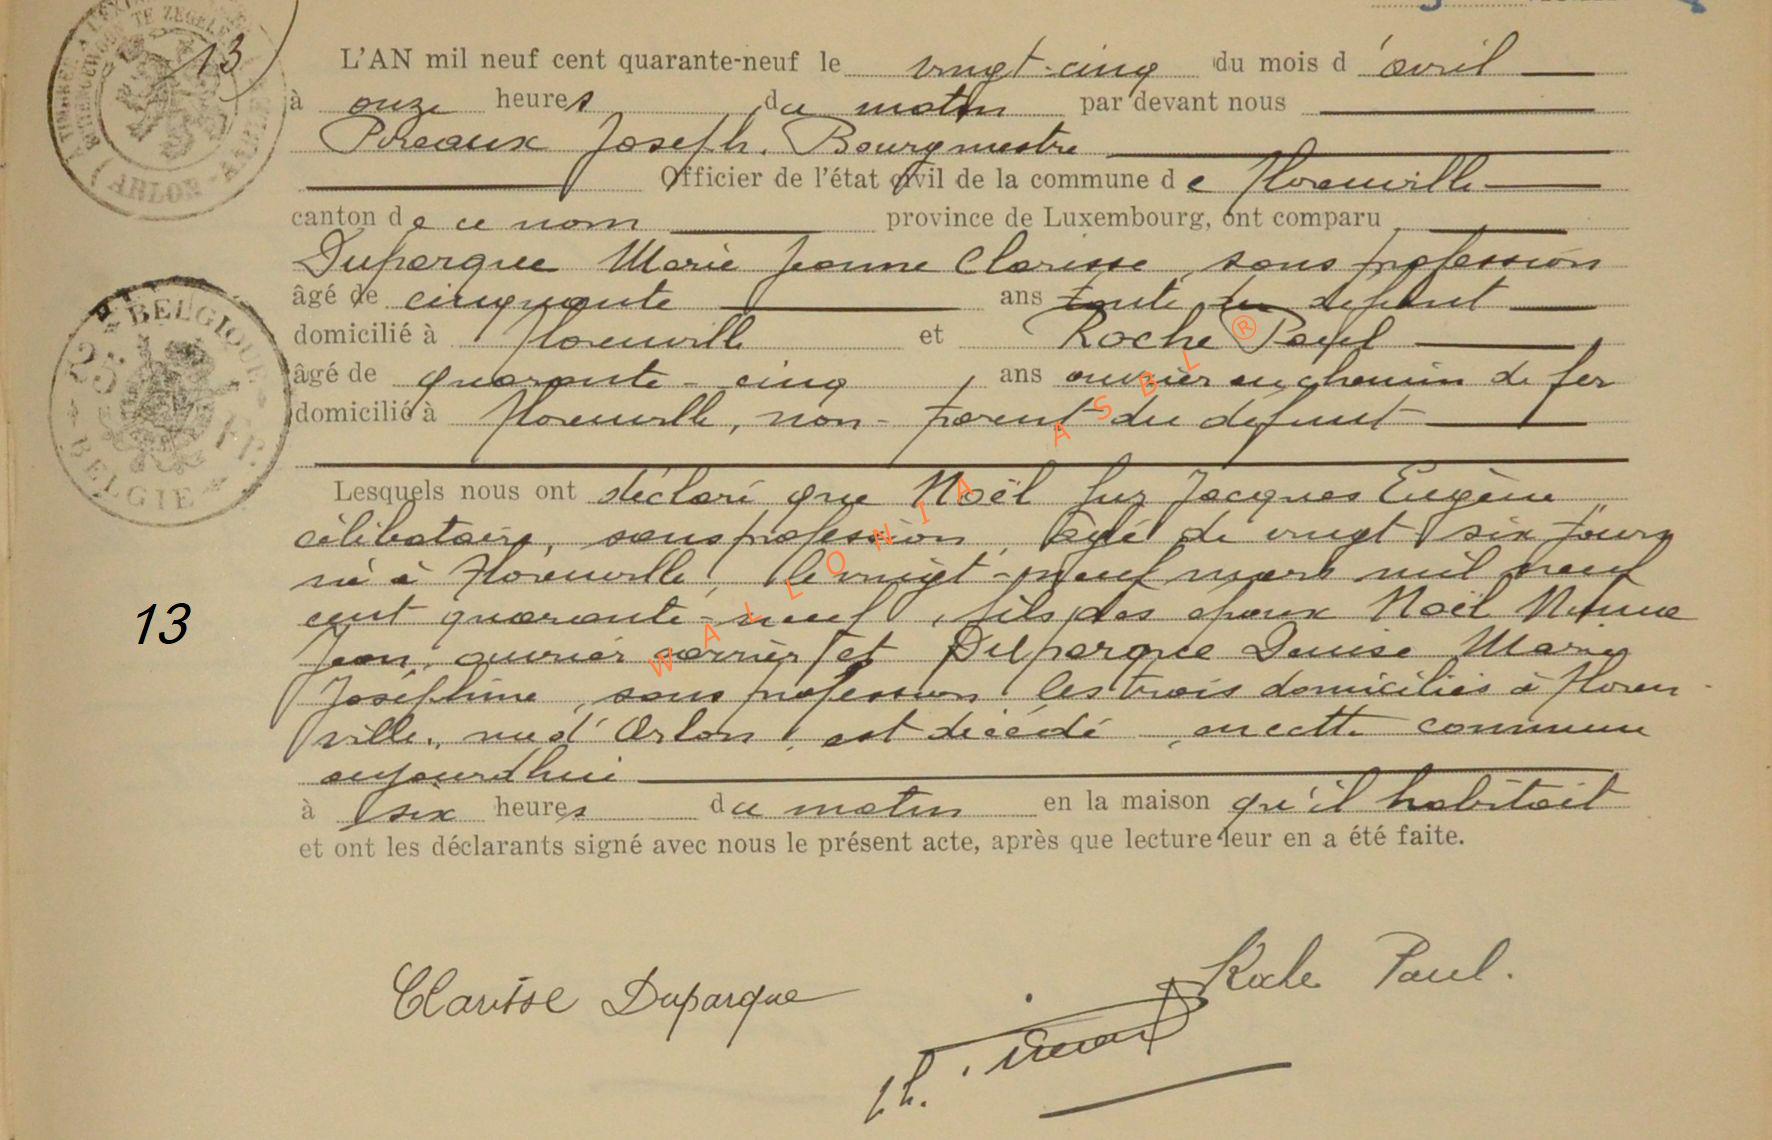 13
L'AN mil neuf cent quarante-neuf le vingt-cinq du mois d'avril
à onze heures du matin par devant nous
Pireaux Joseph. Bourgmestre
Officier de l'état civil de la commune de Florenville
canton de ce nom province de Luxembourg, ont comparu
Duparque Marie Jeanne Clarisse, sans profession
âgé de cinquante ans tante du défunt
domicilié à Florenville et Roche Paul
âgé de quarante-cinq ans ouvrier au chemin de fer
domicilié à Florenville, non-parent du défunt
Lesquels nous ont déclaré que Noël Guy Jacques Eugène,
célibataire, sans profession, âgé de vingt six jours
né à Florenville, le vingt-neuf mars mil neuf
cent quarante-neuf, fils des époux Noël
Jean, ouvrier carrier et Duparque Denise Marie
Joséphine, sans profession, les trois domiciliés à Floren-
ville, rue d'Arlon, est décédé, en cette commune
aujourd'hui
à six heures du matin en la maison qu'il habitait
et ont les déclarants signé avec nous le présent acte, après que lecture leur en a été faite.
Clarisse Duparque
Roche Paul.
ARLON
BELGIQUE
BELGIE
13
WALLONIA ASBL ®